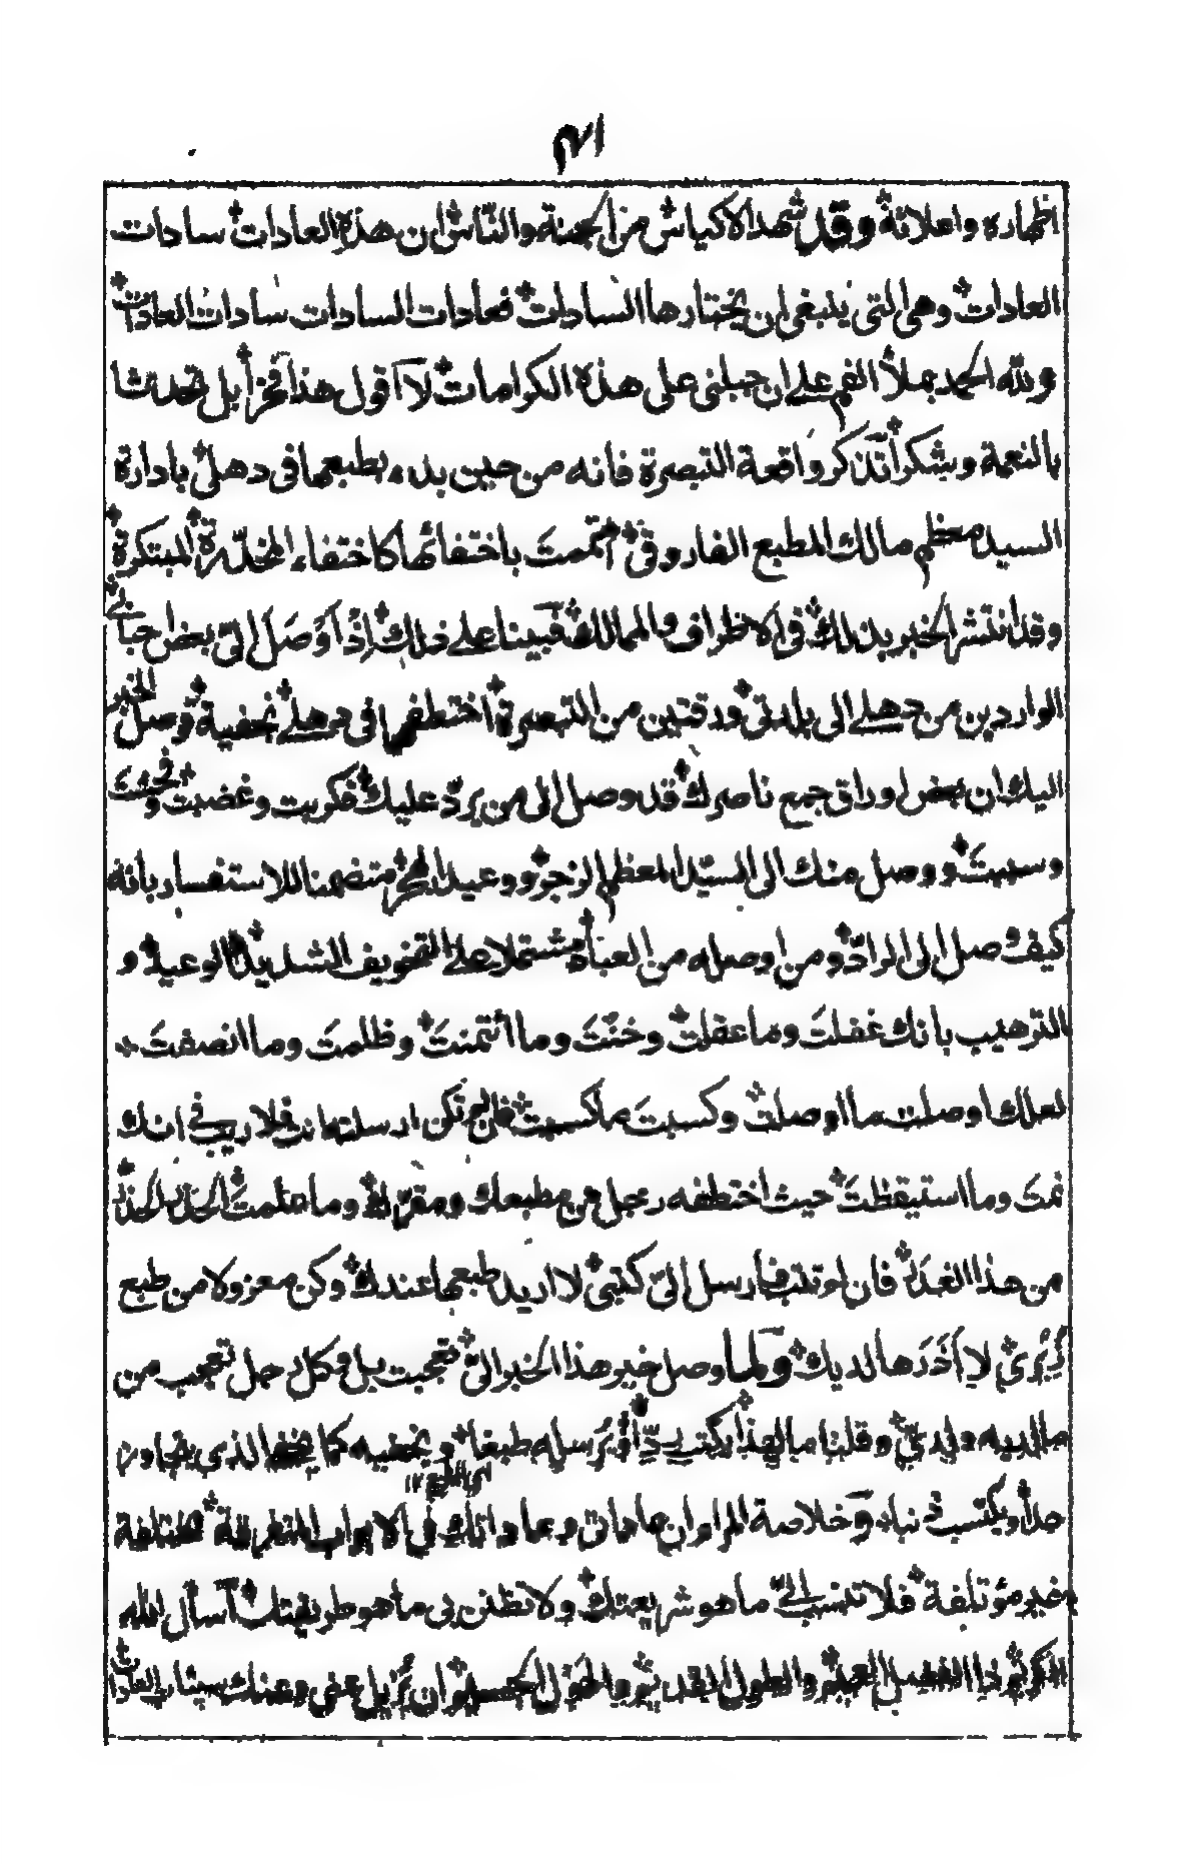 اظهاره واعلانة وقد شهد الاكياس من الجنة والناس ان هذه العادات سادات
العادات وهي التي ينبغي ان يختارها السادات فعادات السادات سادات العادات
ولله الحمد بملأ الفم على ان جبلني على هذه الكرامات لا اقول هذا فخرا بل تحدثا
بالنعمة وشكرا تذكر واقعة التبصرة فانه من حين بدء بطبعها في دهلي بادارة
السيد معظم مالك المطبع الفاروقي اهتممت باختفائها كاختفاء المخدرة المبتكرة
وقد انتشر الخبر بذلك في الاطراف والممالك فبينا على ذلك اذا وصل الي بعض احبائي
الواردين من دهلي الى بلدتي ورقتين من التبصرة اختطفها في دهلي بخفية ووصل الخبر
اليك ان بعض اوراق جمع ناصرك قد وصل الى من يرد عليك فكربت وغضبت
وسببت ووصل منك الى السيد المعظم الزجر ووعيد متضمنا للاستفسار بانه
كيف وصل الى الراد ومن اوصله من العباد مشتملا على التخويف الشديد والوعيد و
الترهيب بانك غفلت وما عفلت وخنت وما ائتمنت وظلمت وما انصفت
لعلك اوصلت ما اوصلت وكسبت ما كسبت فان لم تكن ارسلته انت فلا ريب في انك
نمت وما استيقظت حيث اختطفه رجل من مطبعك ومقرك وما علمت الحذر الحذر
من هذا الغدر فان لم تتب فارسل الي كتبي لا اريد طبعها عندك وكن معزولا من طبع
زبري لا اذرها لديك ولما وصل خبر هذا الخبر الي تعجبت بل وكل رجل تعجب من
ما لديه ولدي وقلنا ما لهذا يكتب رد او يرسله طبعا ويخفيه كما يخفي الذي يتجاوز
حدا ويكتسب وخلاصة المرام ان عاداتي وعاداتك في الابواب المتفرقة مختلفة
غير مؤتلفة فلا تنسب الي ما هو شريعتك ولا تظنن بي ما هو طريقتك اسأل الله
الكريم ذا الفضل العميم والطول القديم والحول الجسيم ان يزيل عني وعنك سيئات العادات